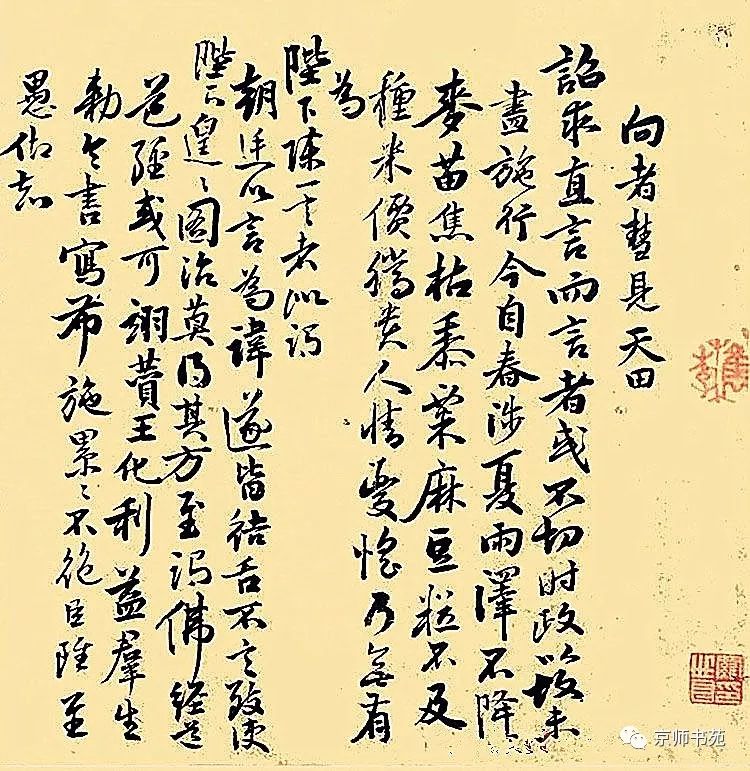 向者彗見天田
詔求直言而言者或不切时政故未
盡施行今自春涉夏雨澤不降
麥苗焦枯黍粟麻豆粒不及
種米價騰貴人情憂惶乃無有
為
陛下陳一言者似謂
朝廷以言為諱遂皆結舌不言致使
陛下遑〻圖治莫得其方至謂佛經
經或可翊贊王化利益羣生
勅令書寫布施累〻不絕臣雖至
愚
京师书苑